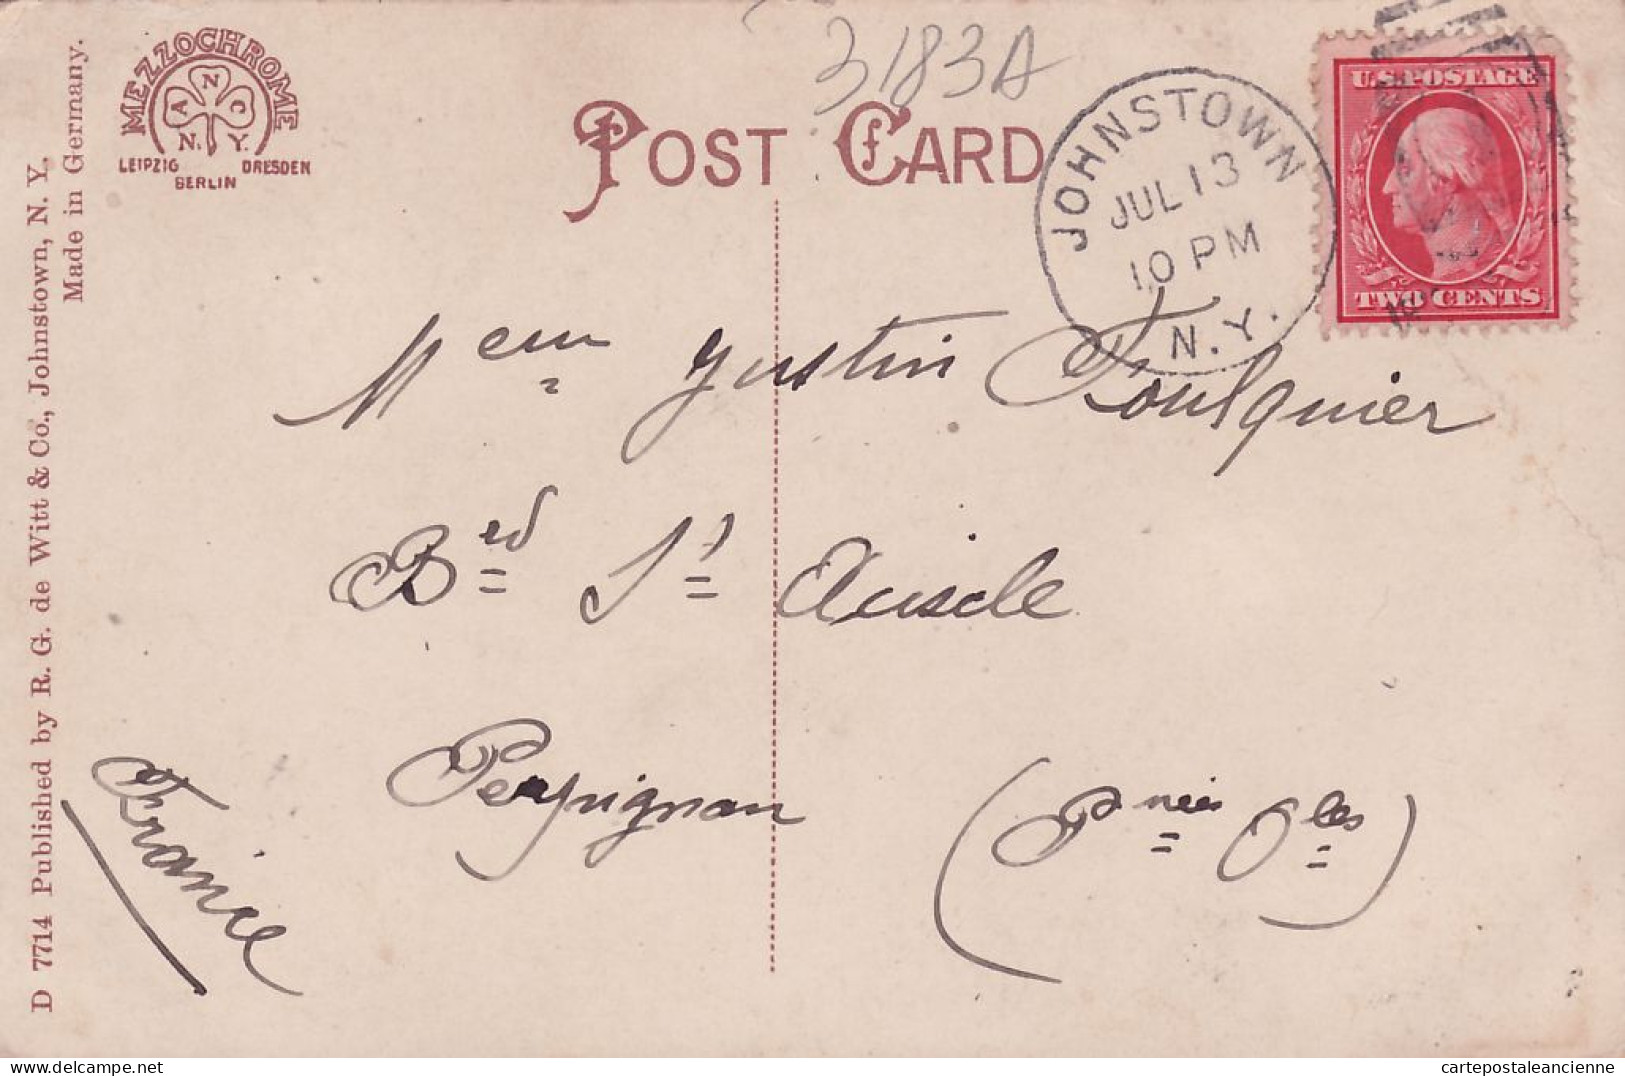 MEZZOCHROME
N
A C
N. Y.
LEIPZIG DRESDEN
BERLIN
3183A
POST CARD
JOHNSTOWN
JUL 13
10 PM
N.Y.
U.S. POSTAGE
TWO CENTS
Justin Foulquier
Bed St Aciscle
Perpignan
(Pnées Oles)
France
D 7714 Published by R. G. de Witt & Co., Johnstown, N. Y.
Made in Germany.
cartepostaleancienne